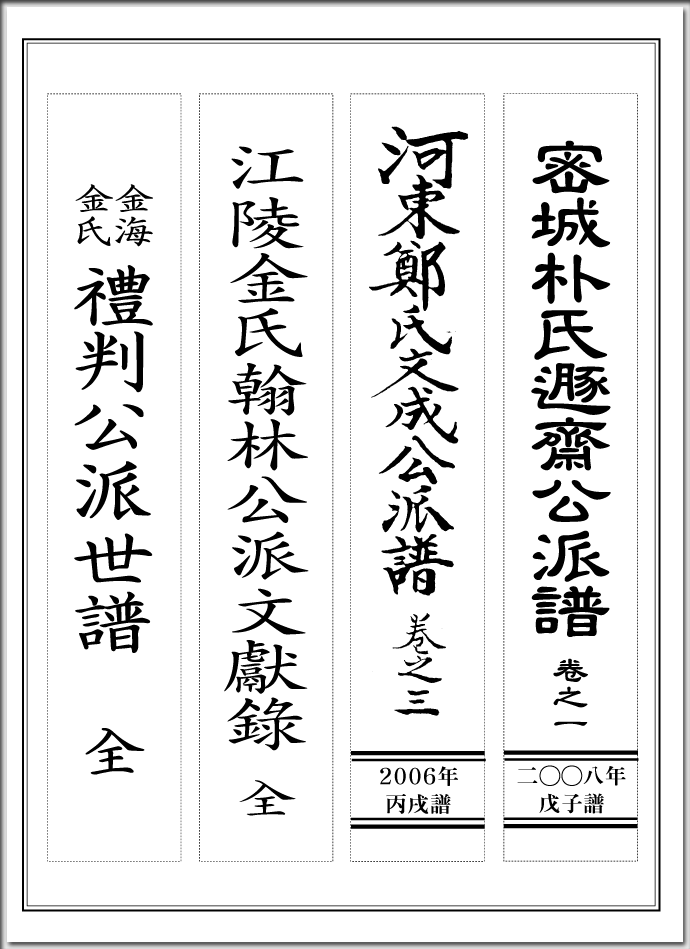 密城朴氏遯齋公派譜
卷之一
二〇〇八年
戊子譜
河東鄭氏文成公派譜
卷之三
2006年
丙戌譜
江陵金氏翰林公派文獻錄
全
金海
金氏
禮判公派世譜
全